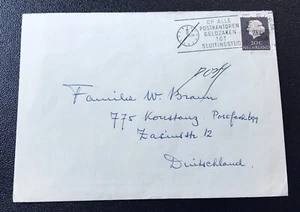 OP ALLE
POSTKANTOREN
GELDZAKEN
TOT
SLUITINGSTIJD
30c
NEDERLAND
Familie W. Braun
775 Konstanz Postfach
12
Deutschland.